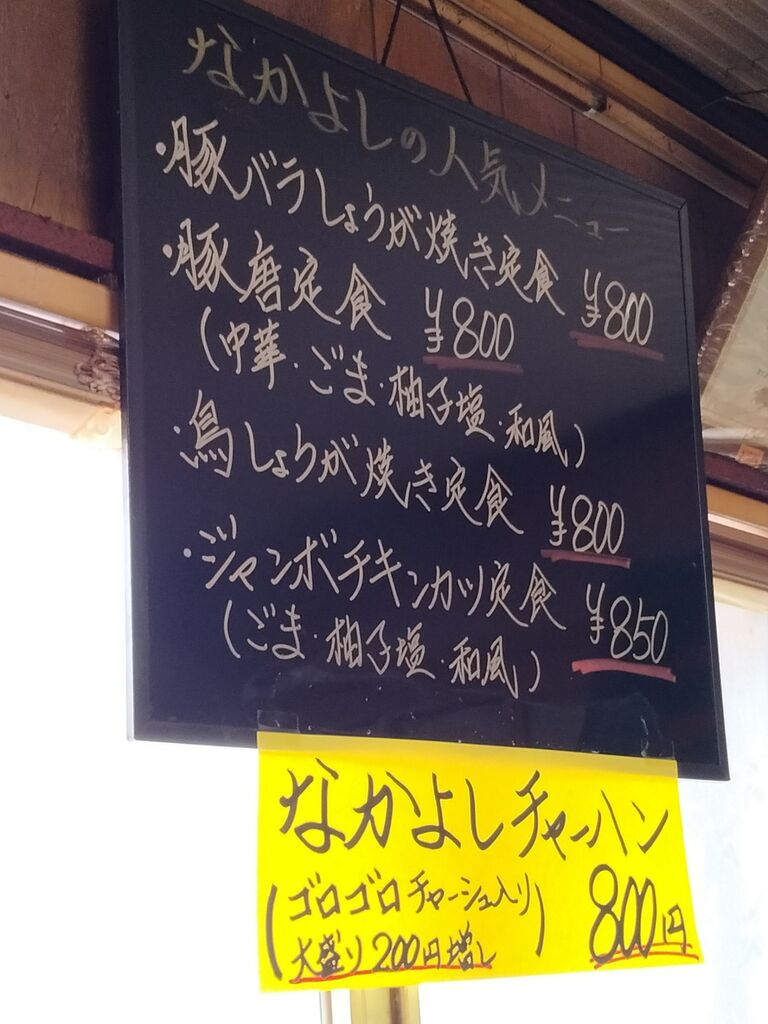 なかよしの人気メニュー
・豚バラしょうが焼き定食 ¥800
・豚磨定食 ¥800
(中華・ごま・柚子塩・和風)
・鳥しょうが焼き定食 ¥800
・ジャンボチキンカツ定食 ¥850
(ごま・柚子塩・和風)
なかよしチャーハン
(ゴロゴロチャーシュー入り
大盛り200円増し) 800円